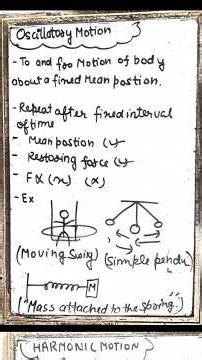 Oscillatory Motion
- To and foo Motion of body
about a fined Mean postion.
- Repeat after fined interval
of time
- Mean postion (✓)
- Restoring force (✓)
- F ∝ (x)
- Ex
(Moving Swing) (Simple pendu
M
"Mass attached to the spring."
HARMONIC MOTION